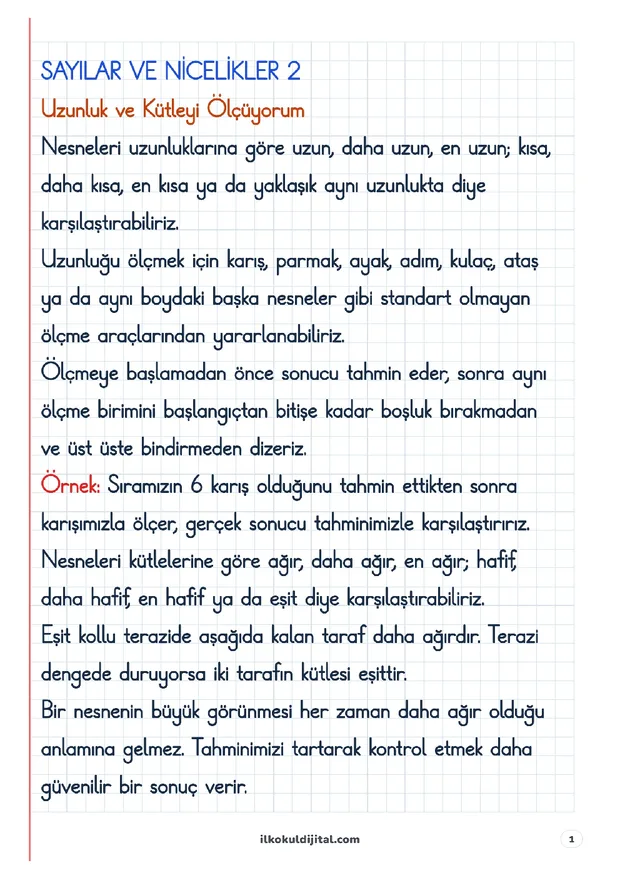 SAYILAR VE NİCELİKLER 2
Uzunluk ve Kütleyi Ölçüyorum
Nesneleri uzunluklarına göre uzun, daha uzun, en uzun; kısa,
daha kısa, en kısa ya da yaklaşık aynı uzunlukta diye
karşılaştırabiliriz.
Uzunluğu ölçmek için karış, parmak, ayak, adım, kulaç, ataş
ya da aynı boydaki başka nesneler gibi standart olmayan
ölçme araçlarından yararlanabiliriz.
Ölçmeye başlamadan önce sonucu tahmin eder, sonra aynı
ölçme birimini başlangıçtan bitişe kadar boşluk bırakmadan
ve üst üste bindirmeden dizeriz.
Örnek: Sıramızın 6 karış olduğunu tahmin ettikten sonra
karışımızla ölçer, gerçek sonucu tahminimizle karşılaştırırız.
Nesneleri kütlelerine göre ağır, daha ağır, en ağır; hafif,
daha hafif, en hafif ya da eşit diye karşılaştırabiliriz.
Eşit kollu terazide aşağıda kalan taraf daha ağırdır. Terazi
dengede duruyorsa iki tarafın kütlesi eşittir.
Bir nesnenin büyük görünmesi her zaman daha ağır olduğu
anlamına gelmez. Tahminimizi tartarak kontrol etmek daha
güvenilir bir sonuç verir.
ilkokuldijital.com
1